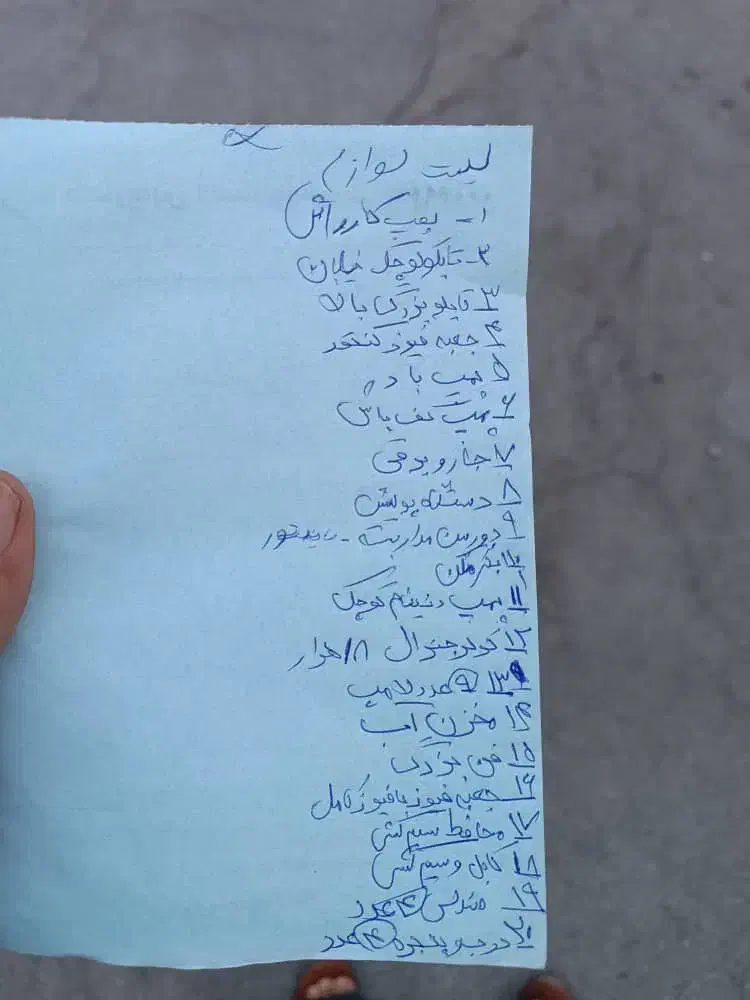 لیست لوازم
۱- پمپ کارواش
۲- تابلو کوچک خیابان
۳ تابلو بزرگ بالا
۴ جعبه فیوز کنتور
۵ پمپ باد
۶ پمپ کف پاش
۷ جارو برقی
۸ دستگاه پولیش
۹ دوربین مداربسته - مانیتور
۱۰ آبگرمکن
۱۱ پمپ کوچک
۱۲ کولر جنرال ۱۸ هزار
۱۳ ۹ عدد لامپ
۱۴ مخزن آب
۱۵ فن بزرگ
۱۶ جعبه فیوز با فیوز کامل
۱۷ محافظ سیم کشی
۱۸ کابل و سیم کشی
۱۹ ۴ عدد
۲۰ درب و پنجره ۴ عدد